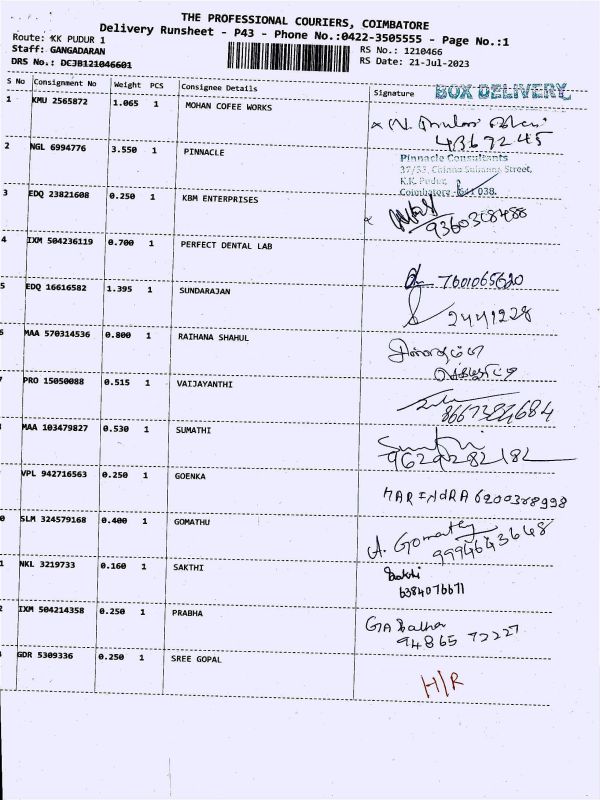 THE PROFESSIONAL COURIERS, COIMBATORE
Delivery Runsheet - P43 - Phone No.:0422-3505555 - Page No.:1
Route: KK PUDUR 1
Staff: GANGADARAN
DRS No.: DCJB121046601
RS No.: 1210466
RS Date: 21-Jul-2023
BOX DELIVERY
S No Consignment No Weight PCS Consignee Details Signature
1 KMU 2565872 1.065 1 MOHAN COFEE WORKS
4367245
2 NGL 6994776 3.550 1 PINNACLE
Pinnacle Consultants
37/53, Chinna Street,
K.K. Pudur,
Coimbatore - 641 038.
3 EDQ 23821608 0.250 1 KBM ENTERPRISES
9360308488
4 IXM 504236119 0.700 1 PERFECT DENTAL LAB
7601065620
5 EDQ 16616582 1.395 1 SUNDARAJAN
2441228
6 MAA 570314536 0.800 1 RAIHANA SHAHUL
7 PRO 15050088 0.515 1 VAIJAYANTHI
8667384684
MAA 103479827 0.530 1 SUMATHI
9629282182
VPL 942716563 0.250 1 GOENKA
HARINDRA 6200388998
0 SLM 324579168 0.400 1 GOMATHU
A. Gomathy
9994643648
1 NKL 3219733 0.160 1 SAKTHI
Sakthi
6384076671
2 IXM 504214358 0.250 1 PRABHA
94865 72227
GDR 5309336 0.250 1 SREE GOPAL
H/R